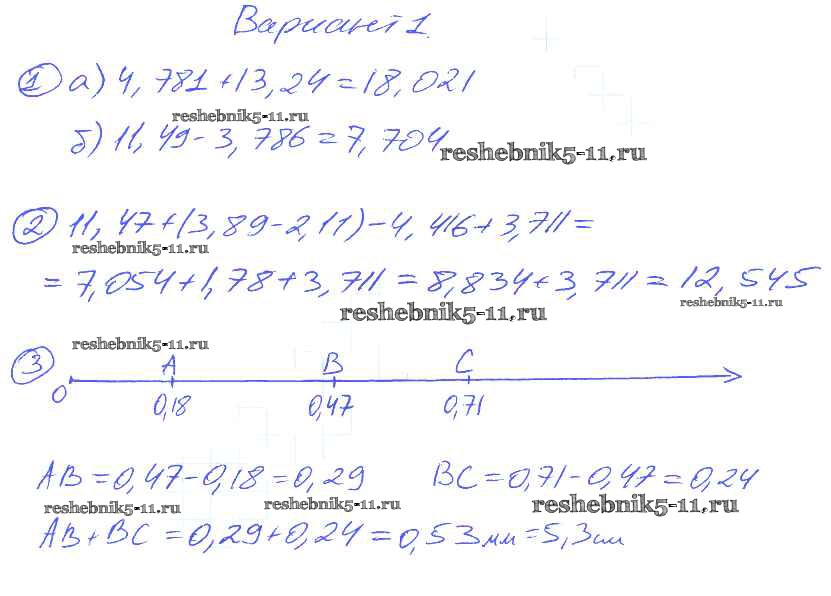 Вариант 1.
① а) 4,781+13,24=18,021
reshebnik5-11.ru
б) 11,49-3,786=7,704
reshebnik5-11.ru
② 11,47+(3,89-2,11)-4,416+3,711=
reshebnik5-11.ru
=7,054+1,78+3,711=8,834+3,711=12,545
reshebnik5-11.ru
reshebnik5-11.ru
reshebnik5-11.ru
③ A B C
0
0,18 0,47 0,71
AB=0,47-0,18=0,29 BC=0,71-0,47=0,24
reshebnik5-11.ru reshebnik5-11.ru reshebnik5-11.ru
AB+BC=0,29+0,24=0,53мм=5,3см